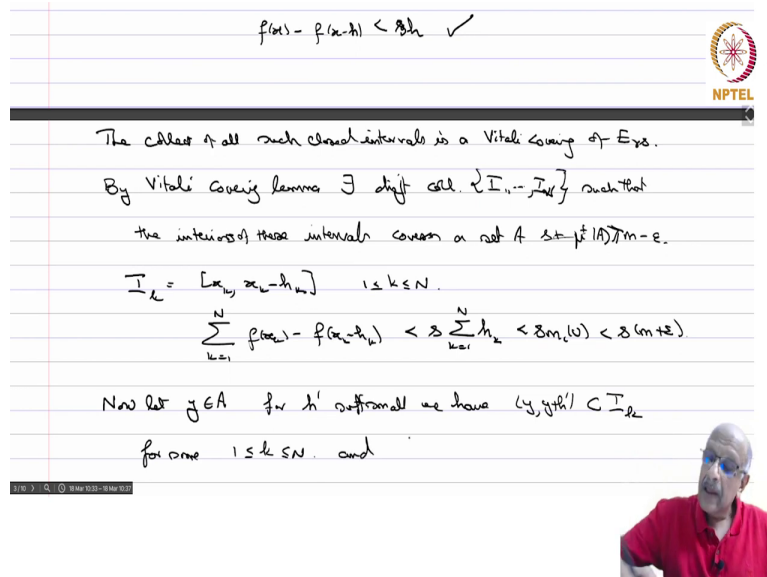 f(x) - f(x-h) < sh ✓
NPTEL
The collect of all such closed intervals is a Vitali covering of E_rs.
By Vitali covering lemma ∃ disjt coll. {I_1, ..., I_N} such that
the interiors of these intervals covers a set A s.t. μ*(A) > m - ε.
I_k = [x_k, x_k - h_k] 1 ≤ k ≤ N.
∑_{k=1}^{N} f(x_k) - f(x_k - h_k) < s ∑_{k=1}^{N} h_k < s m_1(U) < s(m+ε).
Now let y ∈ A for h' suff small we have (y, y+h') ⊂ I_k
for some 1 ≤ k ≤ N. and
3/10 18 Mar 10:33 - 18 Mar 10:37